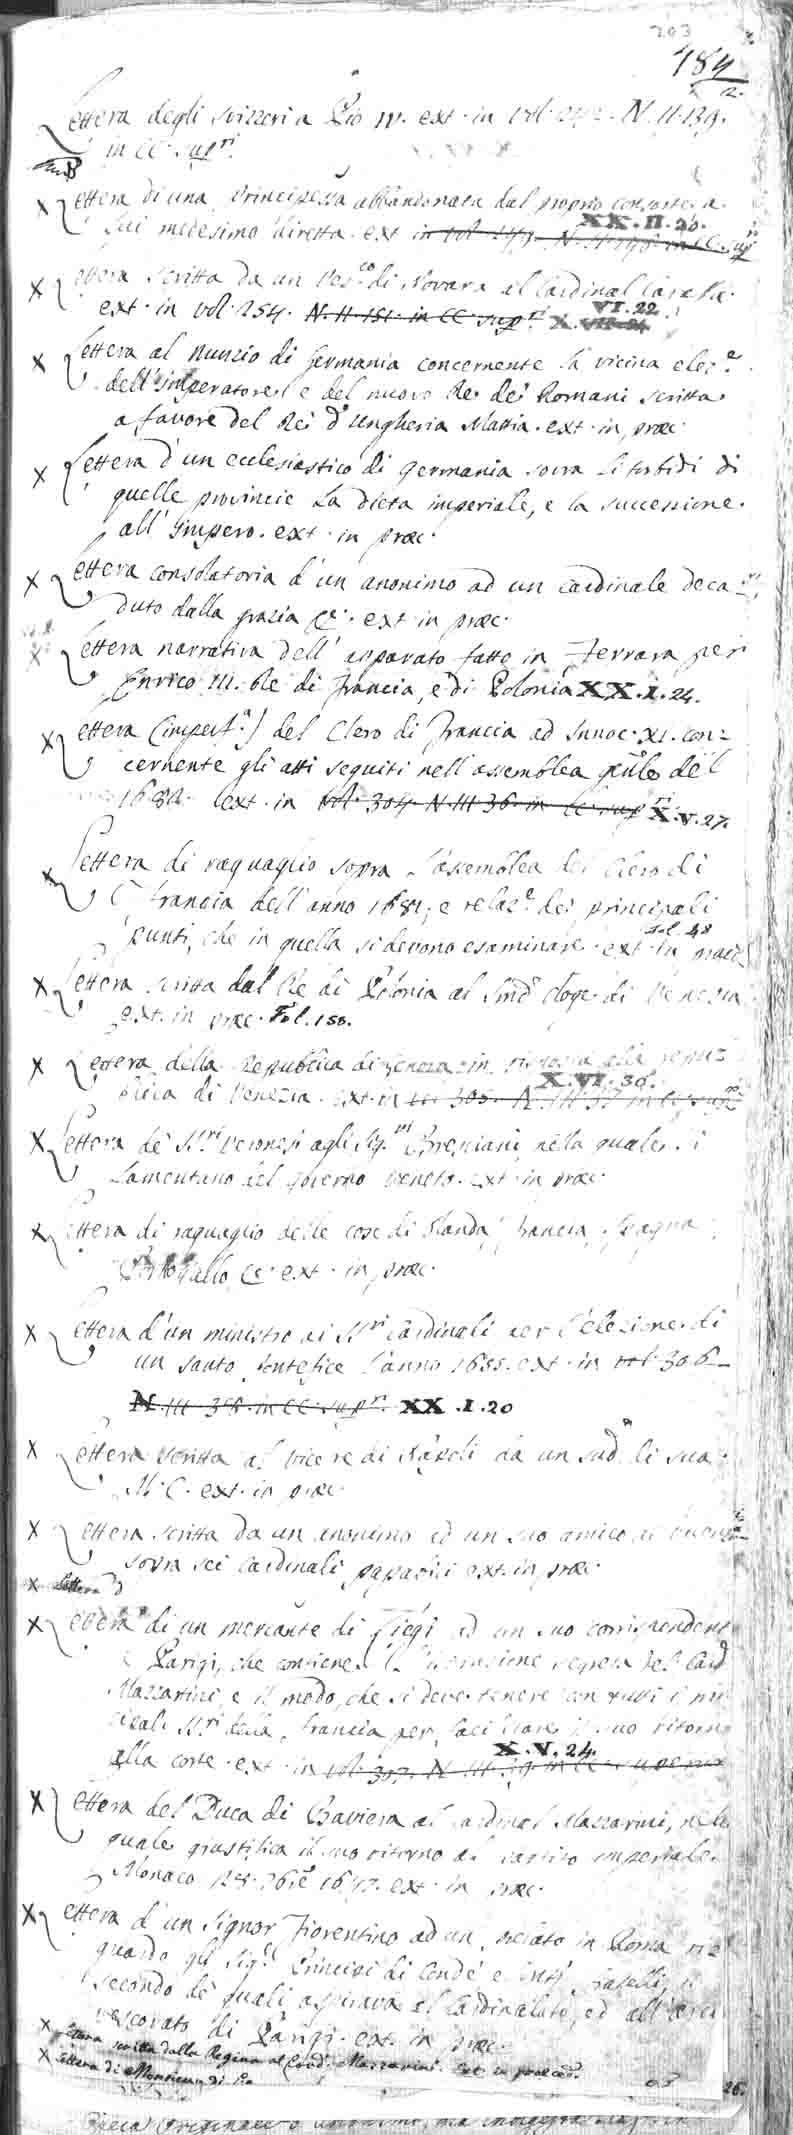 203
184
2.
Lettera degli Svizzeri a Pio IV. ext. in vol. 242. N. II. 139.
in CC. sup.ri
Lettera di una Principessa abbandonata dal proprio consorte a
XX. II. 20.
lui medesimo diretta. ext. in vol. N. II. in CC. sup.ri
Lettera scritta da un Vesc.o di Novara al Cardinal Caraffa.
VI. 22
ext. in vol. 254. N. II. 151. in CC. sup.ri X.
Lettera al Nunzio di Germania concernente la vicina elez.e
dell'Imperatore, e del nuovo Re de' Romani scritta
a favore del Re d'Ungheria Mattia. ext. in præc.
Lettera d'un ecclesiastico di Germania sovra li torbidi di
quelle provincie la dieta imperiale, e la successione
all'Impero. ext. in præc.
Lettera consolatoria d'un anonimo ad un cardinale deca
duto dalla grazia &c. ext. in præc.
Lettera narrativa dell'apparato fatto in Ferrara per
Enrico III. Re di Francia, e di Polonia XX. I. 24.
Lettera (imperf.a) del Clero di Francia ad Innoc. XI. con=
cernente gli atti seguiti nell'assemblea gñle del
1682. ext. in vol. 304. N. III. 36. in CC. sup.ri X. V. 27.
Lettera di raguaglio sopra l'assemblea del Clero di
Francia dell'anno 1681, e relaz.e dei principali
fol. 48
punti, che in quella si devono esaminare. ext. in præc.
Lettera scritta dal Re di Polonia al Doge di Venezia
ext. in præc. Fol. 158.
Lettera della Republica di Genova in risposta alla repu=
X. VI. 36.
blica di Venezia. ext. in vol. 305. N. III. 37. in CC. sup.
Lettera de' SS.ri Veronesi agli Sig.ri Bresciani, nella quale si
lamentano del governo Veneto. ext. in præc.
Lettera di raguaglio delle cose di Olanda, Francia, Spagna
Portogallo, &c. ext. in præc.
Lettera d'un ministro ai SS.ri Cardinali per l'elezione di
un santo Pontefice l'anno 1655. ext. in vol. 306
N. III. 38. in CC. sup.ri XX. I. 20
Lettera scritta al Vice re di Napoli da un sud.o di sua
M. C. ext. in præc.
Lettera scritta da un anonimo ad un suo amico
sovra sei Cardinali papabili ext. in præc.
Lettera d
Lettera di un mercante di Liegi ad un suo corrispondente
a Parigi, che contiene l'istruzione segreta del Card.
Mazzarini, e il modo, che si deve tenere con tutti i prin
cipali SS.ri della Francia per facilitare il suo ritorno
X. V. 24.
alla corte. ext. in vol. 307. N. III. 39. in CC. super.
Lettera del Duca di Baviera al Cardinal Mazzarini, nella
quale giustifica il suo ritorno al partito imperiale.
Monaco 1647. ext. in præc.
Lettera d'un Signor Fiorentino ad un prelato in Roma ri=
guardo gli Sig.ri Principi di Condé e Conty fratelli, il
secondo de' quali aspirava al Cardinalato, ed all'arci
vescovato di Parigi. ext. in præc.
Lettera scritta dalla Regina al Card. Mazzarini. Ext. in praeced.
Lettera di Monsieur di
26.